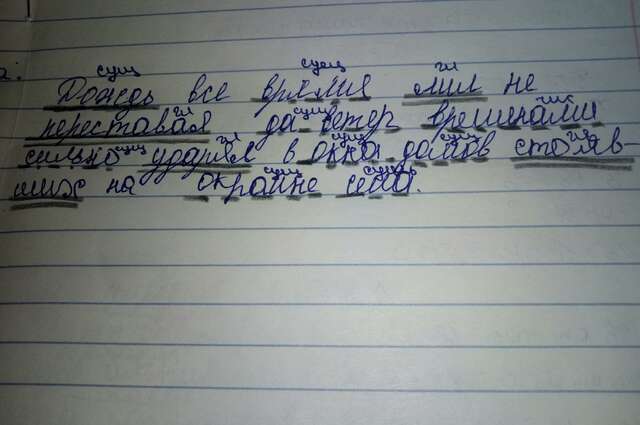 2.
сущ сущ гл
Дождь все время лил не
гл сущ
переставая да ветер временами
сущ гл сущ сущ гл
сильно ударял в окна домов стояв-
сущ сущ
ших на окраине села.